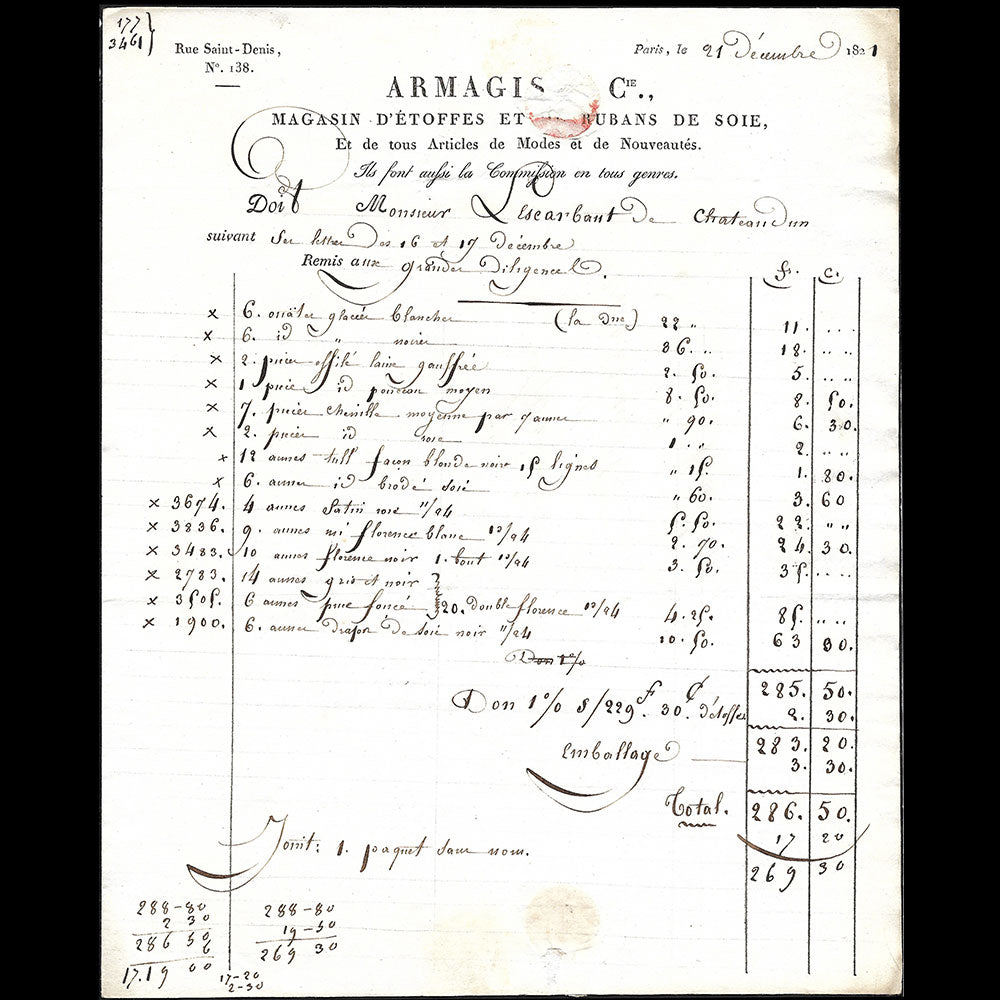 177
3461
Rue Saint-Denis,
N°. 138.
Paris, le 21 Décembre 1821
ARMAGIS CIE.,
MAGASIN D'ÉTOFFES ET RUBANS DE SOIE,
Et de tous Articles de Modes et de Nouveautés.
Ils font aussi la Commission en tous genres.
Doit Monsieur Lescarbaut de Chateaudun
suivant Ses lettres des 16 et 19 Décembre
Remis aux grandes Diligences.
fr. c.
x 6. glacées blanches (la Dne) 22 " 11. ....
x 6. id " noires 36. " 18. .. ..
x 2. pièces effilé laine gauffrée 2. 50. 5. .. ..
x 1 pièce id ponceau moyen 8. 50. 8. 50.
x 7. pièces chenille moyenne par 7 aunes " 90. 6. 30.
x 2. pièces id rose 1. " 2. .. ..
x 12 aunes tull façon blonde noir 15 lignes " 15. 1. 80.
x 6. aunes id brodé soie " 60. 3. 60
x 3674. 4 aunes Satin rose 11/24 5. 50. 22. " "
x 3836. 9. aunes mi florence blanc 13/24 2. 70. 24. 30.
x 3483. 10 aunes florence noir 1. bout 13/24 3. 50. 35. ....
x 2783. 14 aunes gris et noir
x 3505. 6 aunes puce foncé } 20. Double florence 13/24 4. 25. 85. .. ..
x 1900. 6. aunes drap de soie noir 11/24 10. 50. 63 00.
Don 1%
285. 50.
Don 1% S/229F. 30C. d'étoffes 2. 30.
283. 20.
Emballage 3. 30.
Total. 286. 50.
17 20
269 30
Joint: 1. paquet sans nom.
288-80 288-80
2 30 19-50
286 50 269 30
6
17.19 00 17-20
2-30